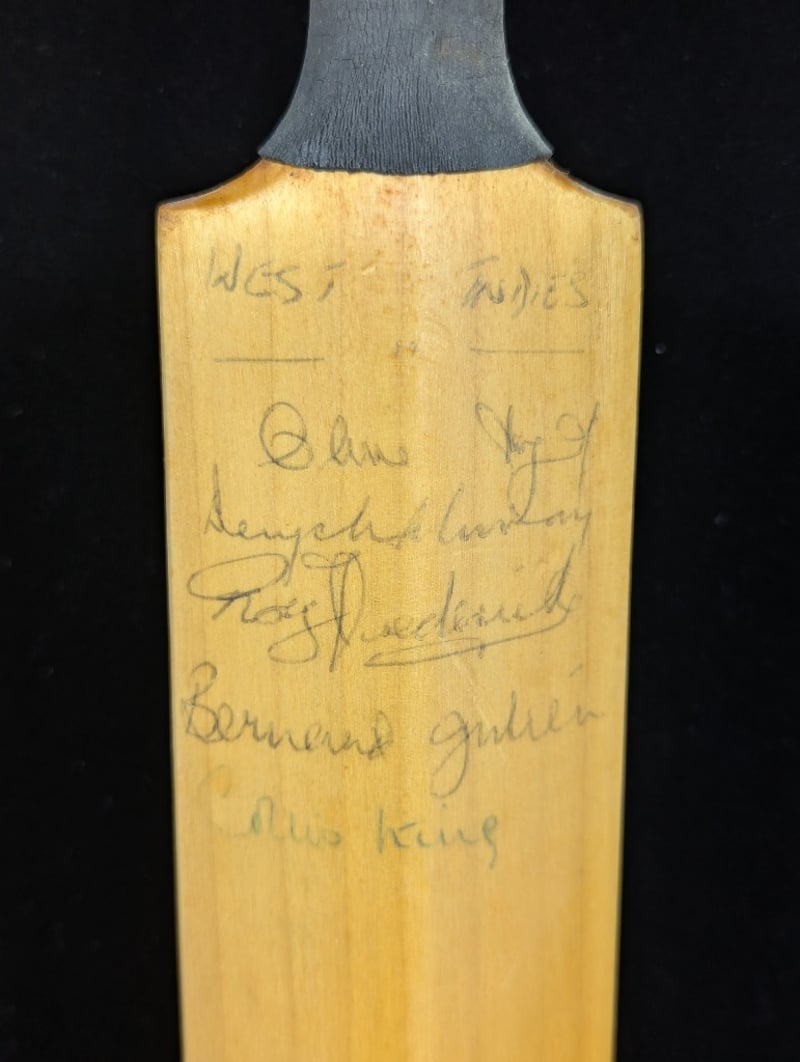 WEST INDIES
Clive
Deryck Murray
Roy Fredericks
Bernard Julien
Collis King